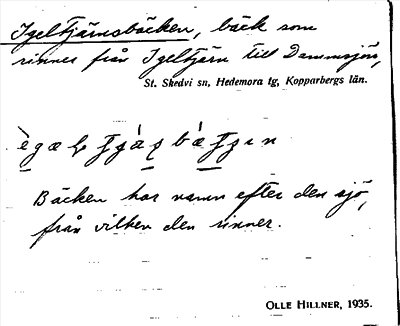 Igeltjärnsbäcken, bäck som
rinner från Igeltjärn till Dammsjön,
St. Skedvi sn, Hedemora tg, Kopparbergs län.
Bäcken har namn efter den sjö,
från vilken den rinner.
OLLE HILLNER, 1935.